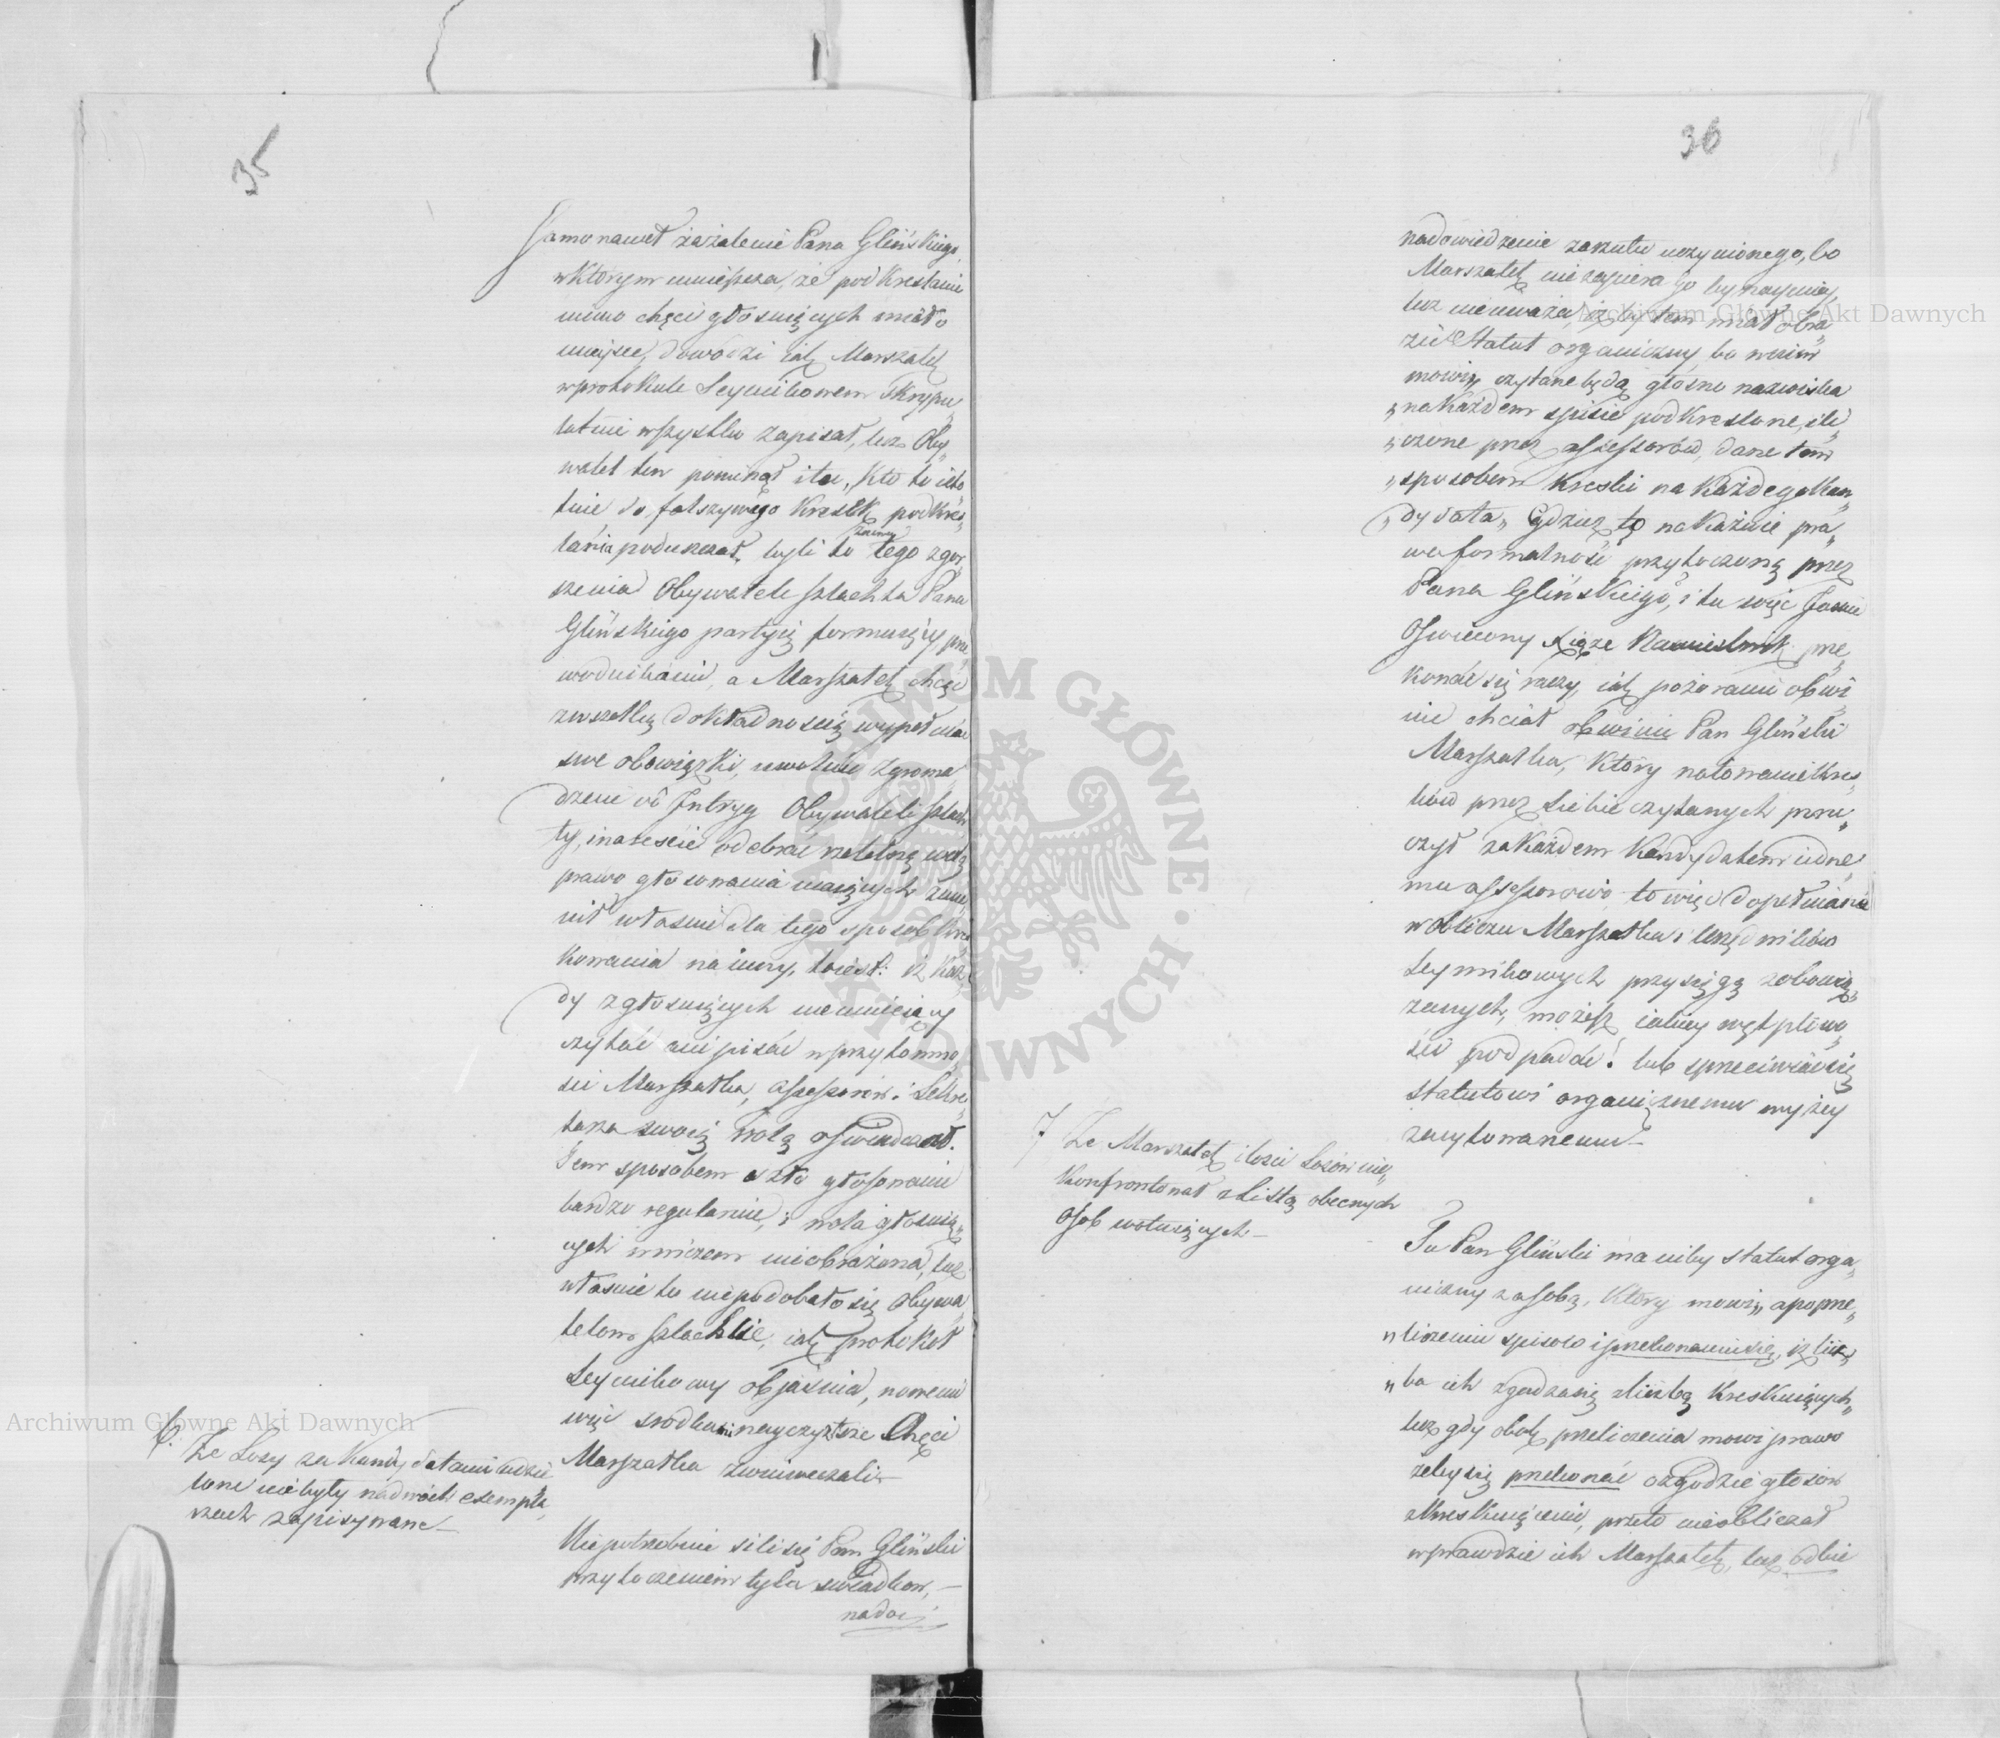 35
Samo nawet zażalenie Pana Glińskiego,
w którym umieszcza, że podkreślanie
mimo chęci głosuiących miało
mieysce, dowodzi iak Marszałek
w protokule Seymikowem skrypu„
latnie wszystko zapisał, lecz Oby„
watel ten pominął i to, kto to isto„
tnie do fałszywego kresek podkreś„
lania poduszczał, byli to
tego zgor„
szenia Obywatele szlachta Pana
Glińskiego partyią formuiący, prze
wodnikami, a Marszałek chcąc
z wszelką dokładnością wypełniać
swe obowiązki, uwolnić zgroma„
dzenie od Intryg Obywateli szlach
ty, i nareszcie odebrać rzetelną wolą
prawo głosowania maiących zmie„
nił właśnie dla tego sposób kres
kowania na inny, to iest: iż każ„
dy z głosuiących nieumieiący
czytać ani pisać w przytomno„
ści Marszałka, Assessorów i Sekre„
tarza swoią wolą oświadczał.
Tem sposobem szło głosowanie
bardzo regularnie, i wola głosuią„
cych w niczem nieobrażona, lecz
właśnie to niepodobało się Obywa„
telom szlachcie, iak protokół
Seymikowy objaśnia, nowemi
więc środkami nayczystsze chęci
Marszałka zniweczali.—
6. Że Losy za Kandydatami udzie
lone niebyły na dwóch exempla„
rzach zapisywane—
Niepotrzebnie sili się Pan Gliński
przytoczeniem tylu świadków,—
nado„
36
nadowiedzenie zarzutu uczynionego, bo
Marszałek nie zapiera go bynaymniey,
lecz nieuważa, iżby tem miał obra„
zić Statut organiczny, bo w nim
mówi„ czytane będą głośno nazwiska
„ na każdem spisie podkreślone, i li„
„ czone przez assessorów, dane tem
„ sposobem kreski na każdego Kan„
„ dydata„ Gdzież tę nakazuie pra„
wo formalność przytoczoną przez
Pana Glińskiego, i tu więc Jaśnie
Oświecony Xiąże Namiestnik prze„
konać się raczy, iak pozorami obwi„
nić chciał obwinić Pan Gliński
Marszałka, który notowanie kres„
ków przez siebie czytanych poru„
czył za każdem Kandydatem iedne„
mu assessorowi to więc dopełniania
w obliczu Marszałka i Urzędników
Seymikowych przysięgą zobowią„
zanych, możesz iakiey wątpliwo„
ści podpadać! lub sprzeciwiać się
statutowi organicznemu wyżey
zacytowanemu—
7 Że Marszałek ilości Losów nie„
konfrontował z Listą obecnych
osób wotuiących—
Tu Pan Gliński ma niby statut orga„
niczny za sobą, który mówi „ a po prze„
„ liczeniu spisów i przekonaniu się, iż licz„
„ ba ich zgadza się z liczbą Kreskuiących„
lecz gdy obok przeliczenia mówi prawo
żeby się przekonać o zgodzie głosów
z kreskuiącemi, przeto nieobliczał
wprawdzie ich Marszałek, lecz odbie
Archiwum Główne Akt Dawnych
Archiwum Główne Akt Dawnych
ARCHIWUM GŁÓWNE · AKT DAWNYCH ·